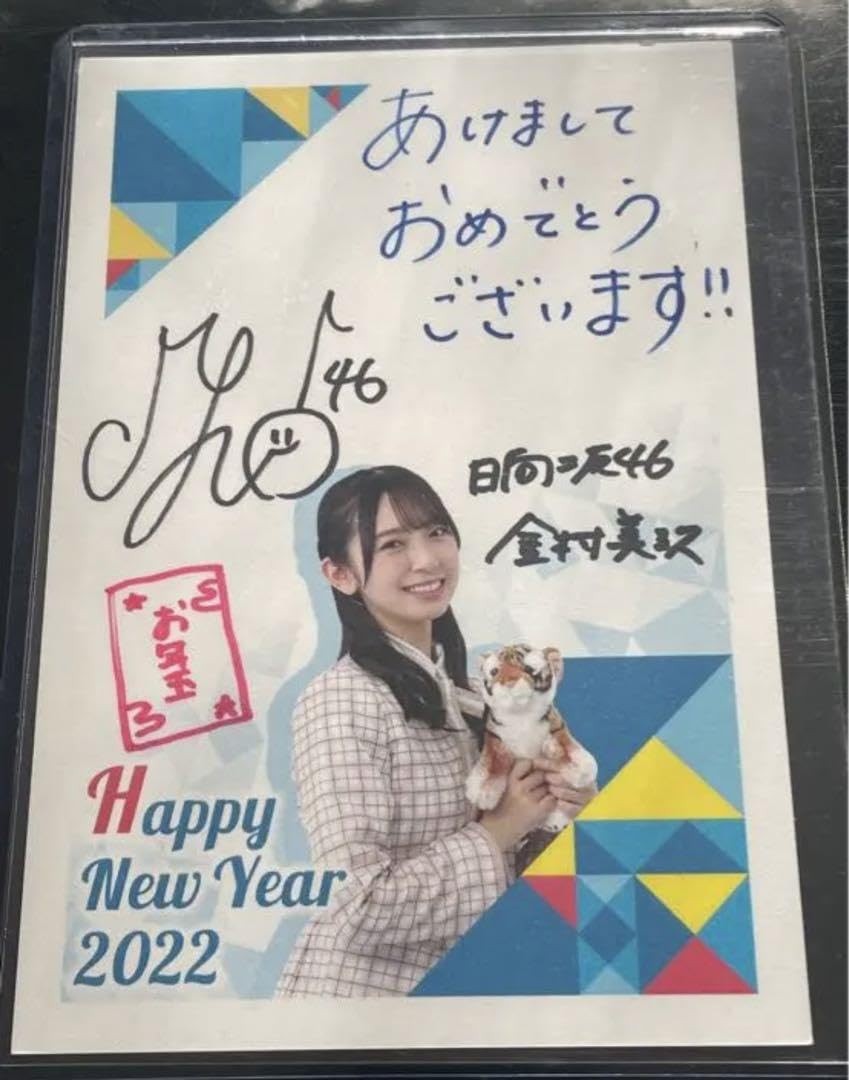 あけまして
おめでとう
ございます!!
46
日向坂46
金村美玖
お年玉
Happy
New Year
2022